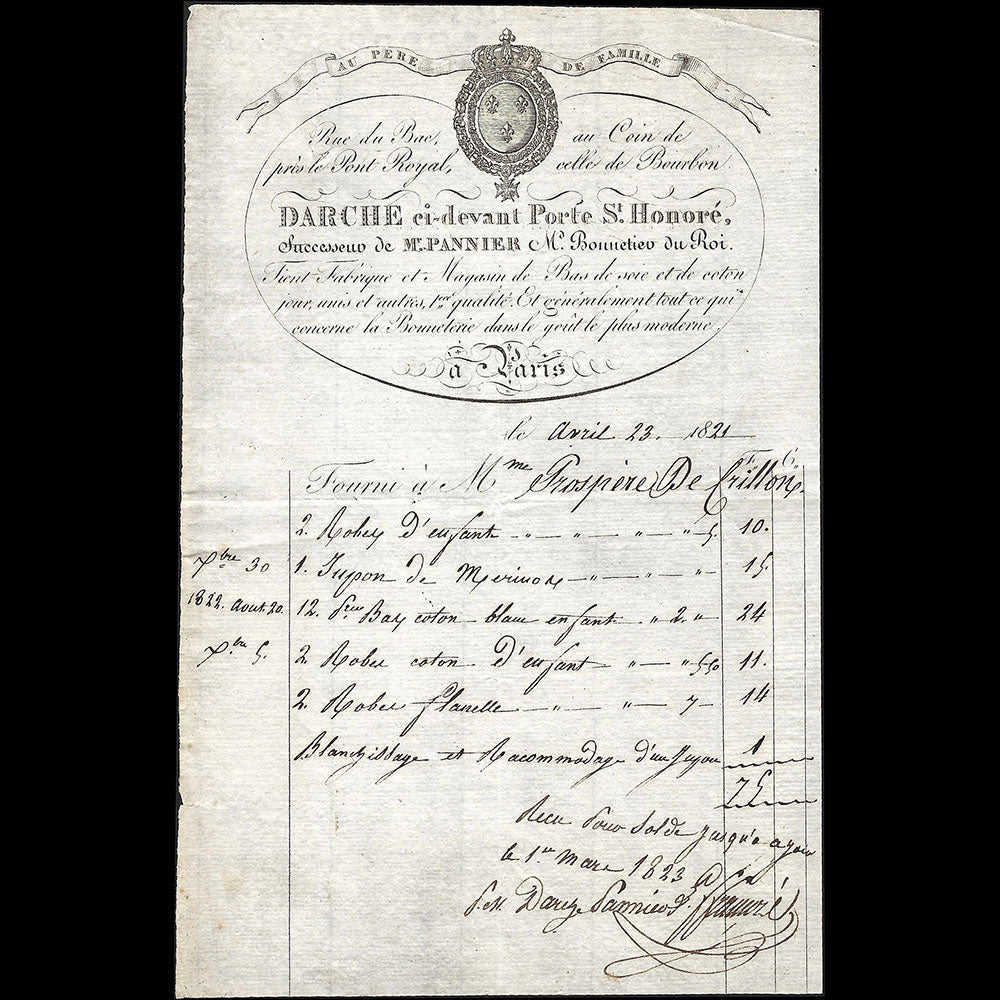 AU PERE DE FAMILLE
Rue du Bac, au Coin de
près le Pont Royal, celle de Bourbon
DARCHE ci-devant Porte St. Honoré,
Successeur de Mr. PANNIER Md. Bonnetier du Roi.
Tient Fabrique et Magasin de Bas de soie et de coton
jour, unis et autres, 1ere qualité. Et généralement tout ce qui
concerne la Bonneterie dans le goût le plus moderne,
à Paris
le Avril 23. 1821
F C
Fourni à Mme Prospère De Crillon.
2. Robes d'enfant 5. 10.
Xbre 30 1. Jupon de Merinos 15
1822. Aout 20. 12. Bas coton blanc enfant 2. 24
Xbre 5. 2 Robes coton d'enfant 5,50 11.
2 Robes flanelle 7 14
Blanchissage et Racommodage d'un Jupon 1
75
Recu pour Solde jusqu'a
le 1er Mars 1823